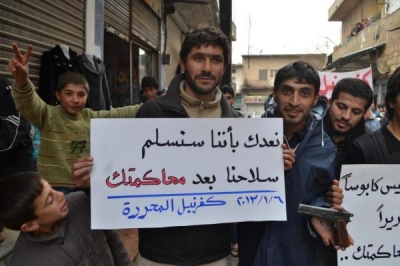 نعدك بأننا سنسلم
سلاحنا بعد محاكمتك
كفرنبل المحررة ٢٠١٣/١/٦
كفرنبل
يس كابوساً
محاكمتك